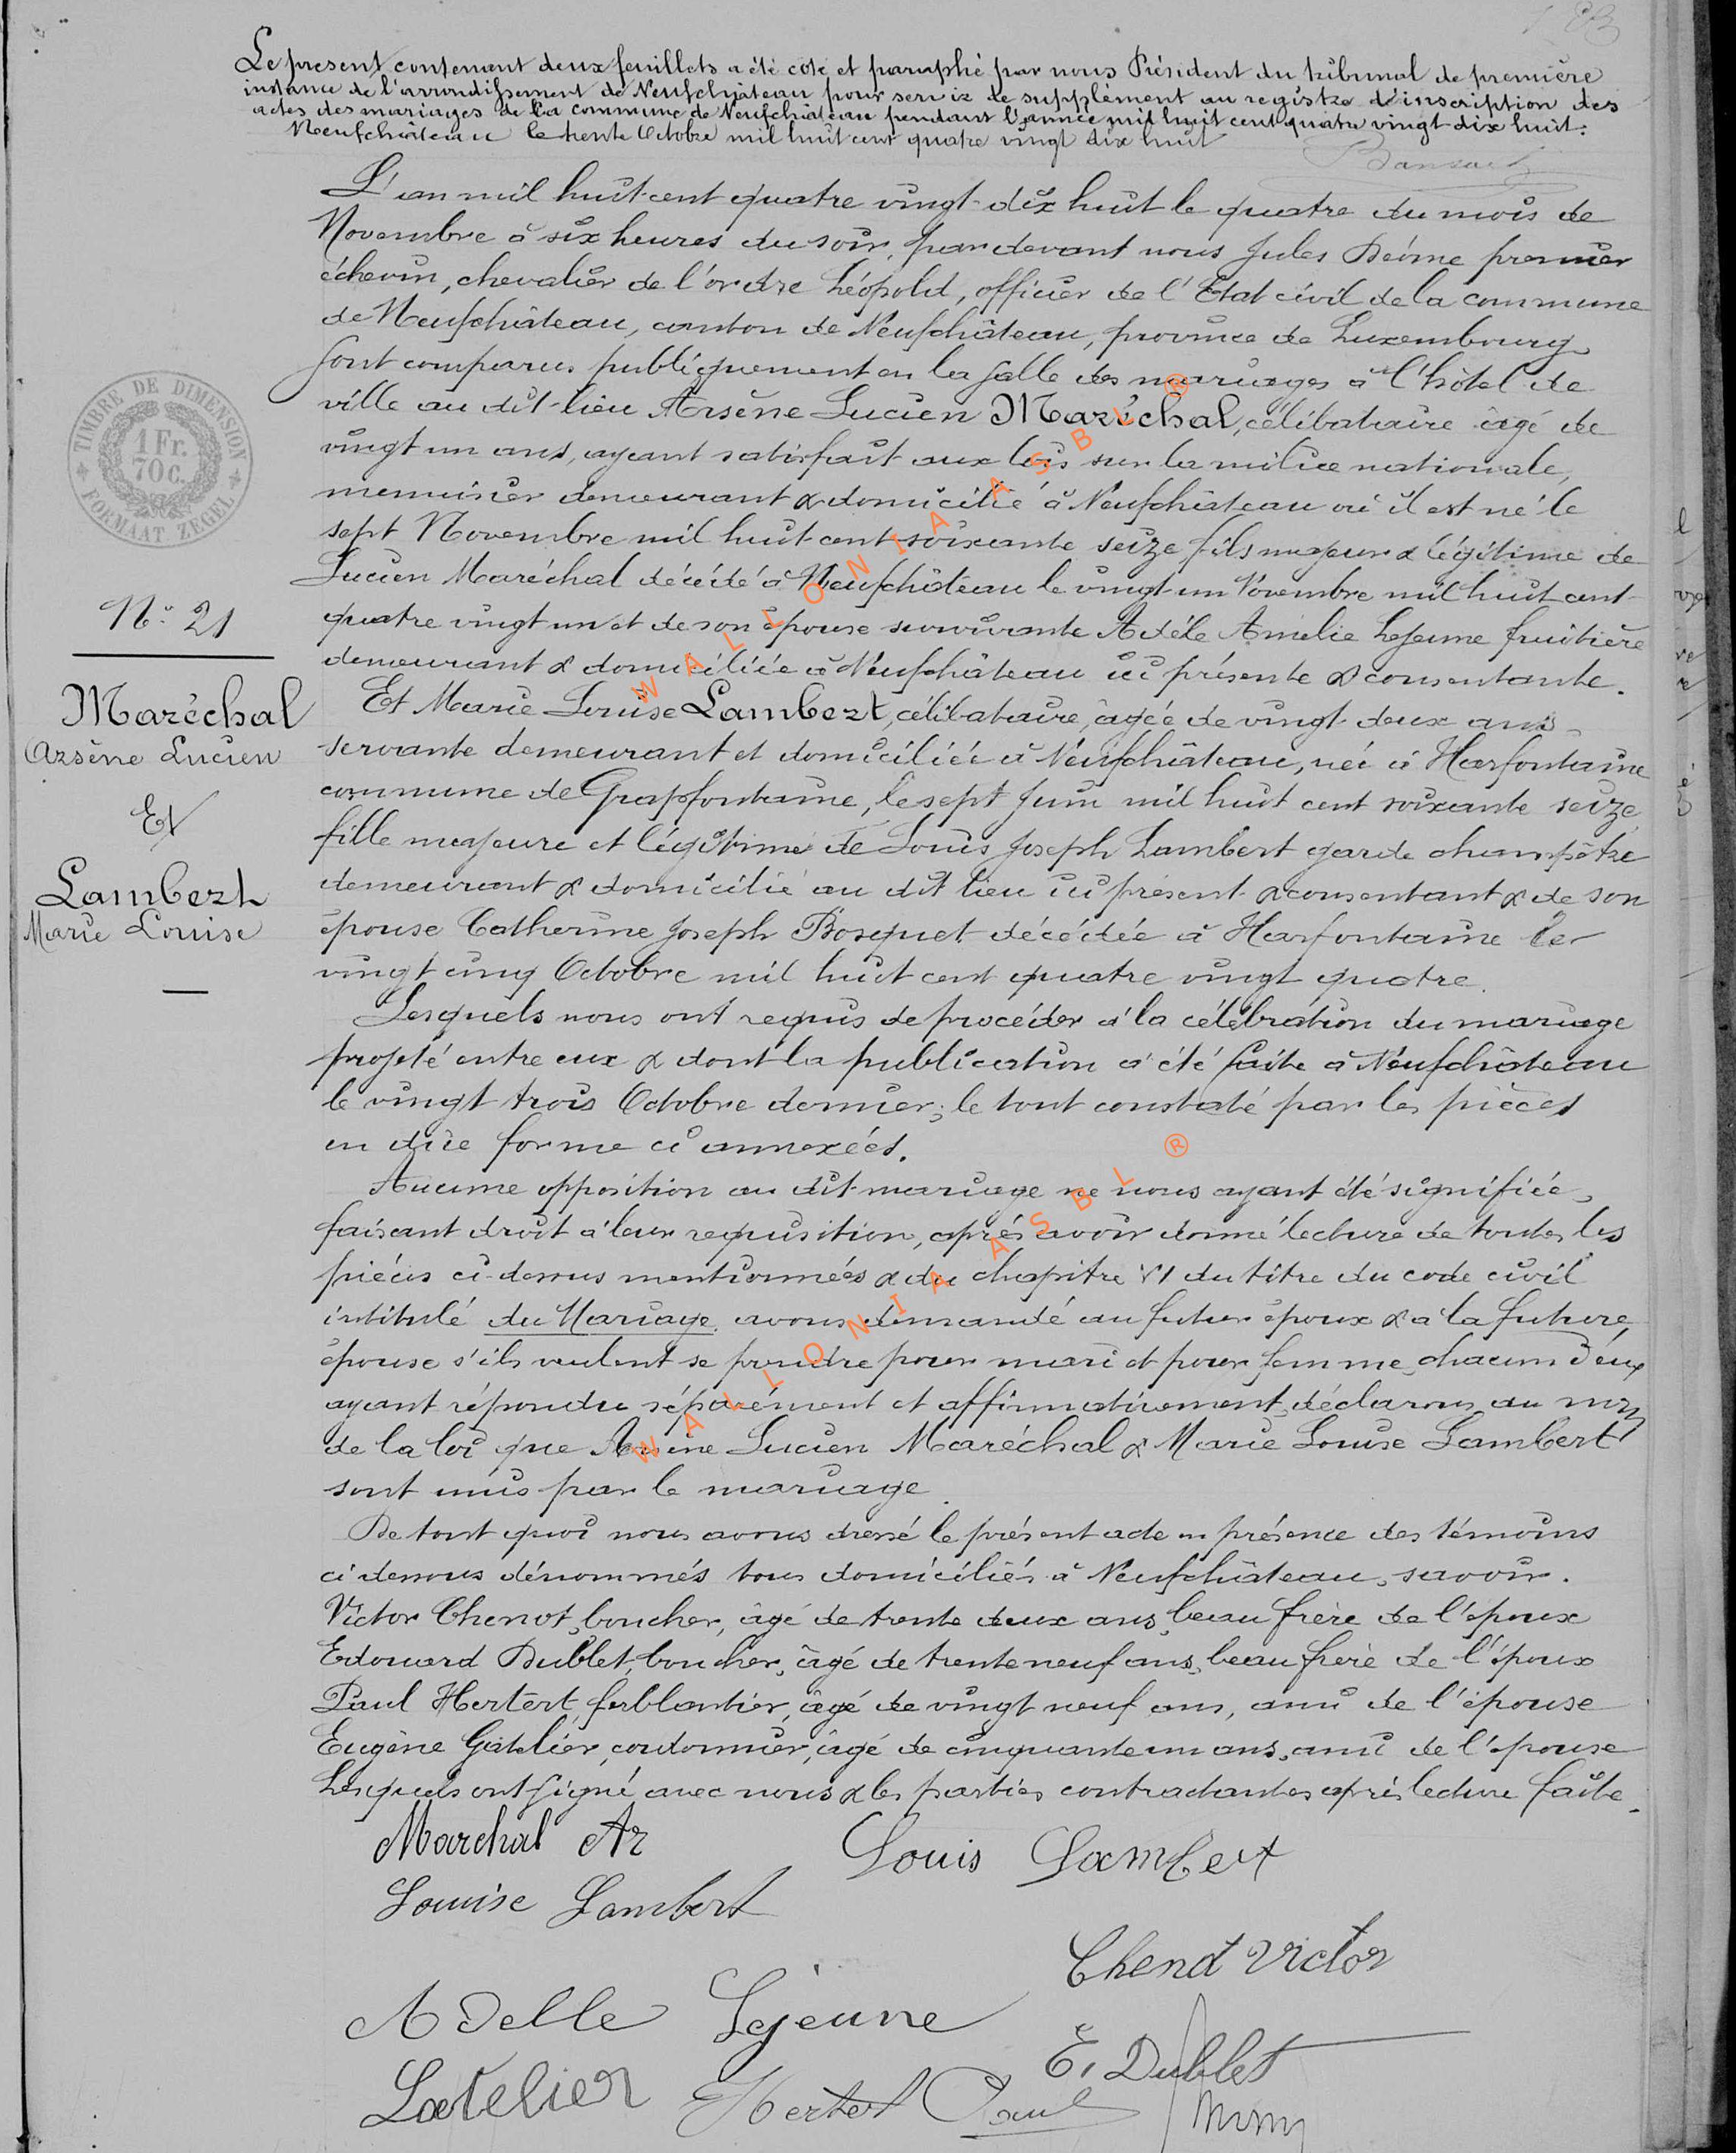 Le présent contenant deux feuillets a été coté et paraphé par nous Président du tribunal de première
instance de l'arrondissement de Neufchâteau pour servir de supplément au registre d'inscription des
actes des mariages de la commune de Neufchâteau pendant l'année mil huit cent quatre vingt dix huit.
Neufchâteau le trente Octobre mil huit cent quatre vingt dix huit
L'an mil huit cent quatre vingt-dix huit le quatre du mois de
Novembre à six heures du soir, par devant nous Jules Déôme premier
échevin, chevalier de l'ordre Léopold, officier de l'Etat civil de la commune
de Neufchâteau, canton de Neufchâteau, province de Luxembourg
sont comparus publiquement en la salle des mariages à l'hôtel de
ville au dit-lieu Arsène Lucien Maréchal, célibataire âgé de
vingt un ans, ayant satisfait aux lois sur la milice nationale,
menuisier demeurant & domicilié à Neufchâteau où il est né le
sept Novembre mil huit cent soixante seize fils majeur & légitime de
Lucien Maréchal décédé à Neufchâteau le vingt-un Novembre mil huit cent
quatre vingt un et de son épouse survivante Adèle Amélie Lejeune fruitière
demeurant & domiciliée à Neufchâteau ici présente & consentante.
Et Marie Louise Lambert, célibataire, âgée de vingt deux ans
servante demeurant et domiciliée à Neufchâteau, née à Harfontaine
commune de Grapfontaine, le sept Juin mil huit cent soixante seize
fille majeure et légitime de Louis Joseph Lambert garde champêtre
demeurant & domicilié au dit lieu ici présent & consentant & de son
épouse Catherine Joseph Bosquet décédée à Harfontaine le
vingt cinq Octobre mil huit cent quatre vingt quatre.
Lesquels nous ont requis de procéder à la célébration du mariage
projeté entre eux & dont la publication a été faite à Neufchâteau
le vingt trois Octobre dernier; le tout constaté par les pièces
en due forme ci annexées.
Aucune opposition au dit mariage ne nous ayant été signifiée,
faisant droit à leur requisition, après avoir donné lecture de toutes les
pièces ci-dessus mentionnées & du chapitre VI du titre du code civil
intitulé du Mariage, avons demandé au futur époux & à la future
épouse s'ils veulent se prendre pour mari et pour femme, chacun d'eux
ayant répondu séparément et affirmativement, déclarons au nom
de la loi que Arsène Lucien Maréchal & Marie Louise Lambert
sont unis par le mariage.
De tout quoi nous avons dressé le présent acte en présence des témoins
ci dessous dénommés tous domiciliés à Neufchâteau, savoir.
Victor Chenot, boucher, âgé de trente deux ans, beau frère de l'époux
Edouard Dublet, boucher, âgé de trente neuf ans, beau frère de l'époux
Paul Hertert, ferblantier, âgé de vingt neuf ans, ami de l'épouse
Eugène Gatelier, cordonnier, âgé de cinquante un ans, ami de l'épouse
Lesquels ont signé avec nous & les parties contractantes après lecture faite.
Marchal Ar
Louis Lambert
Louise Lambert
Chenot Victor
Adelle Lejeune
E. Dublet
Latelier
Hertert Paul
TIMBRE DE DIMENSION
1 Fr.
70c.
FORMAAT ZEGEL
N° 21
Maréchal
Arsène Lucien
Et
Lambert
Marie Louise
WALLONIA ASBL ®
WALLONIA ASBL ®